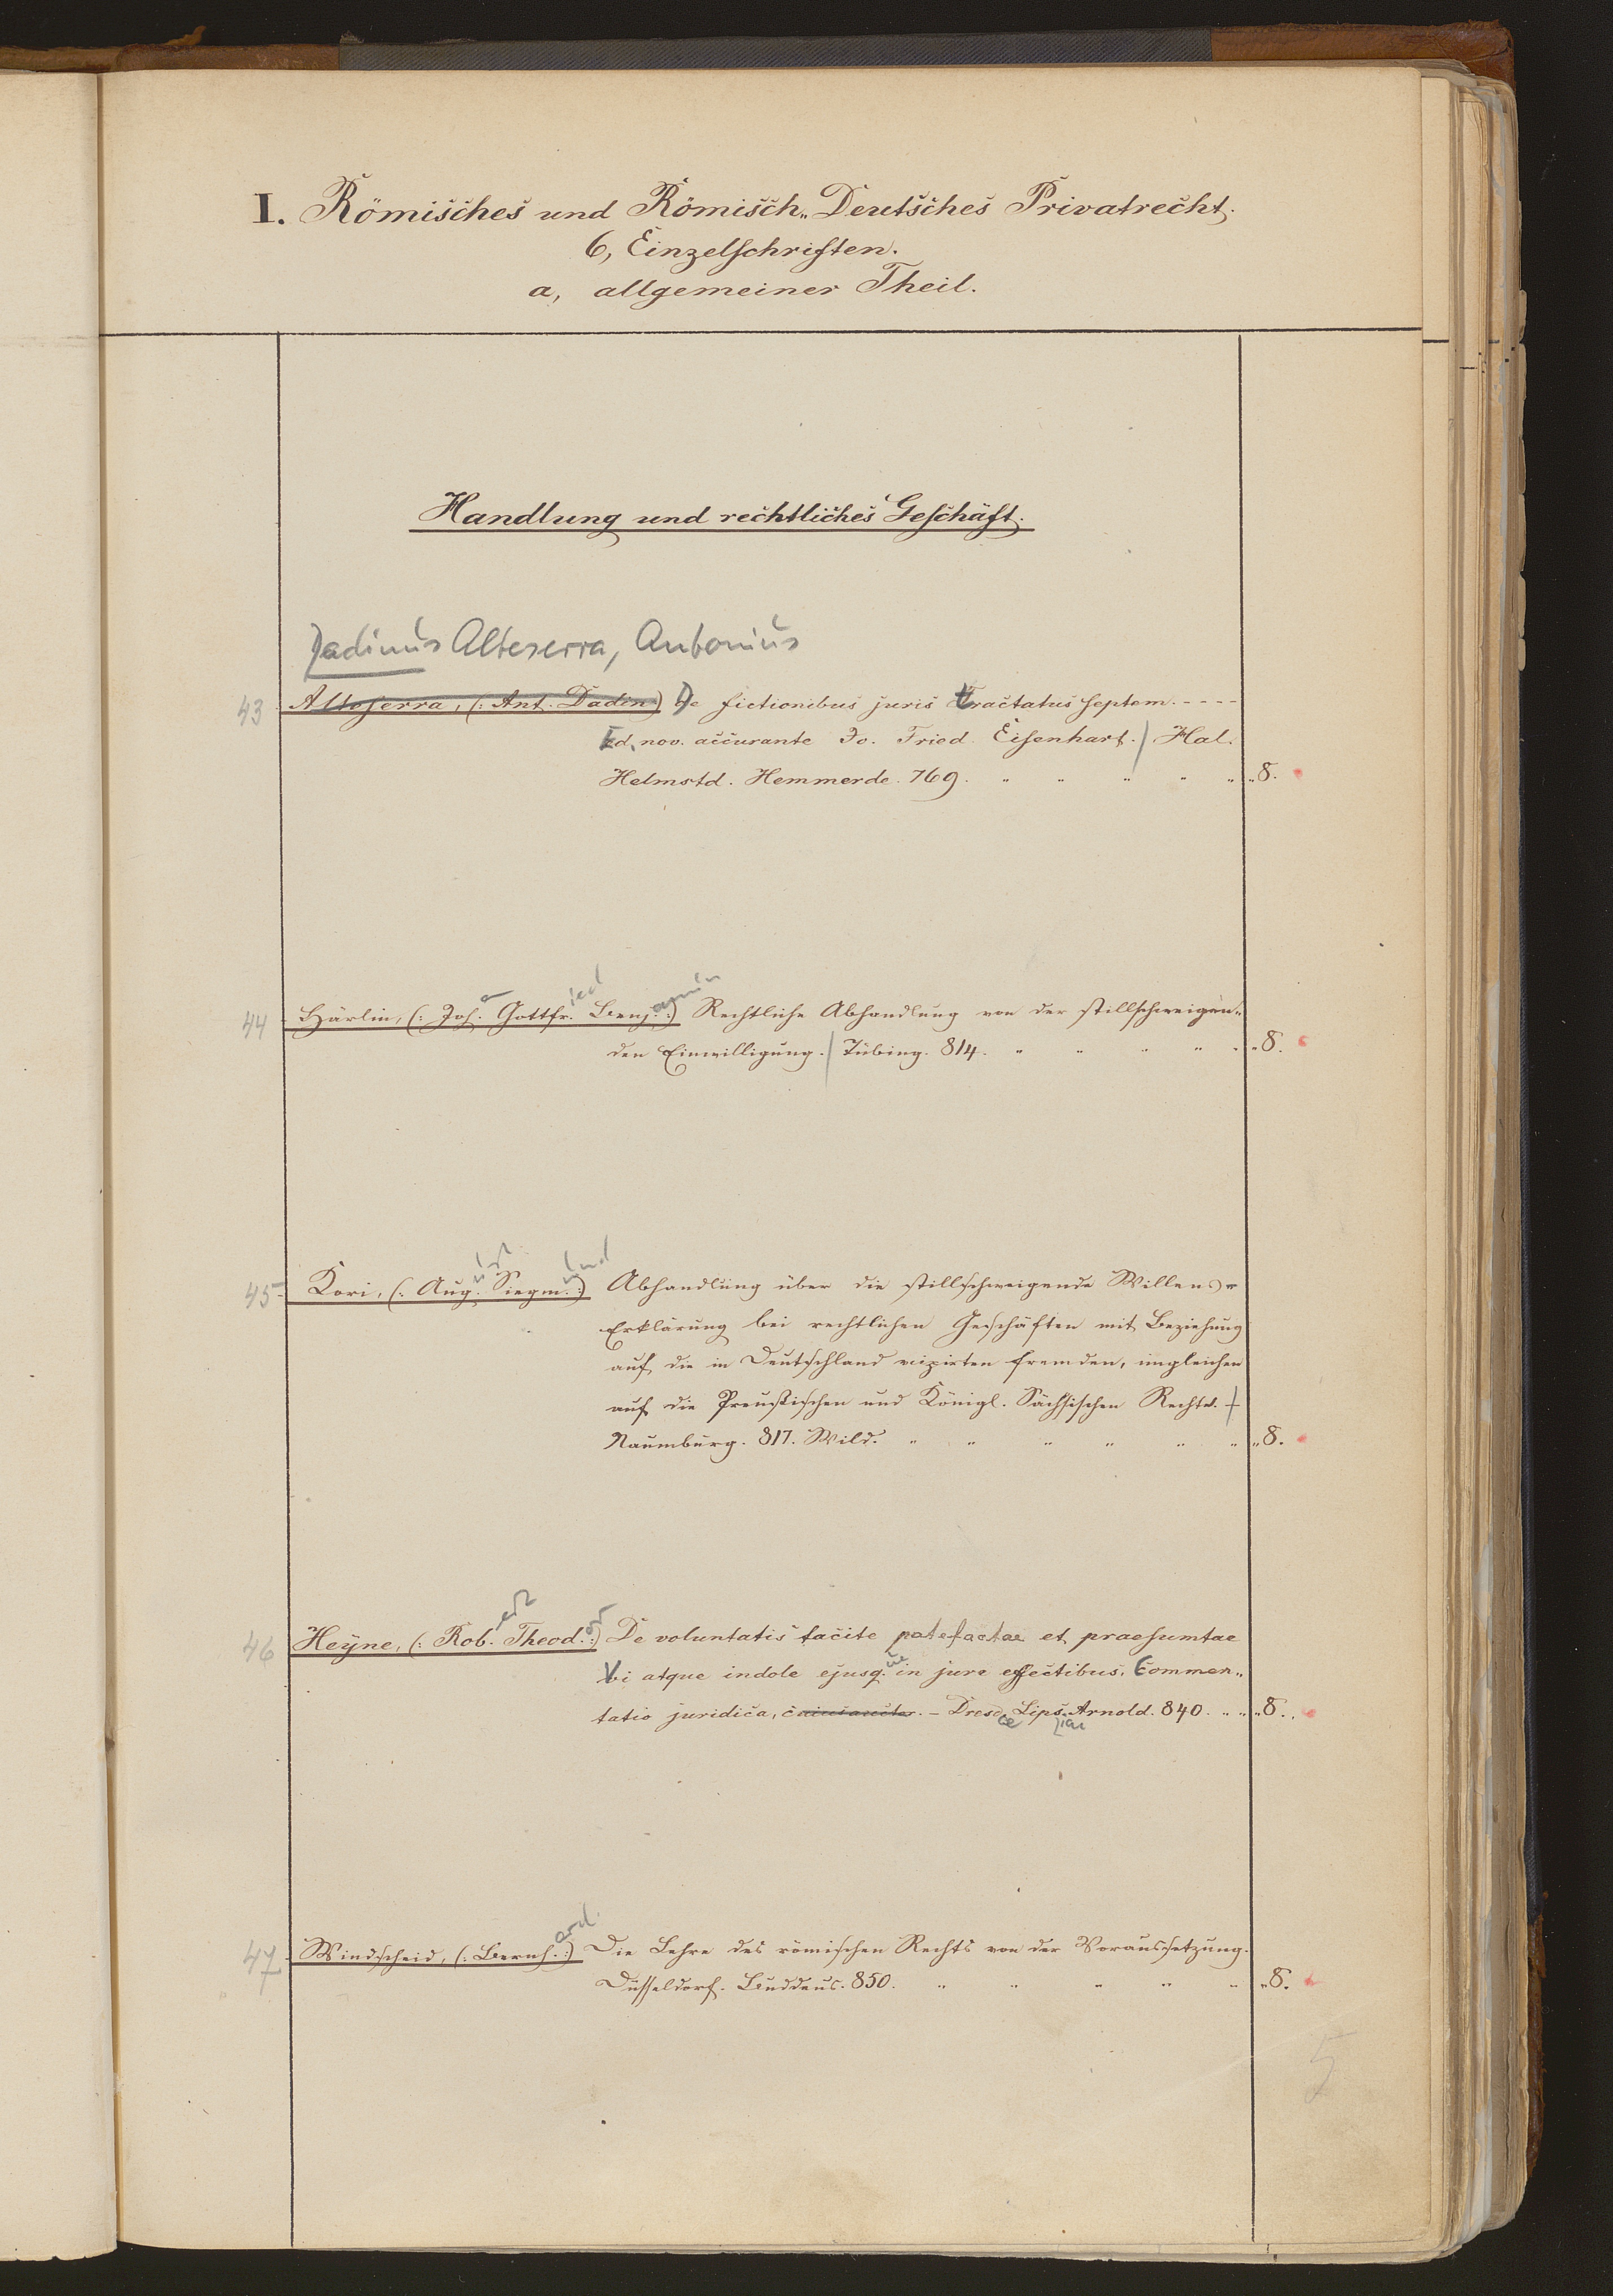 I. Römisches und Römisch„Deutsches Privatrecht.
6, Einzelschriften.
a, allgemeiner Theil.
Handlung und rechtliches Geschäft.
Dadinus Alteserra, Antonius
43 Altoserra, (: Ant. Dadin:) De fictionibus juris tractatus septem. - - - -
Ed. nov. accurante Jo. Fried. Eisenhart. / Hal.
Helmstd. Hemmerde. 769. „ „ „ „ „ „ 8.
44 Härlin, (: Joha. Gottfried. Benjamin :) Rechtliche Abhandlung von der stillschweigen„
den Einwilligung. / Tübing. 814. „ „ „ „ „ „ 8.
45 Kori, (: August. Siegmund. :) Abhandlung über die stillschweigende Willens„
Erklärung bei rechtlichen Geschäften mit Beziehung
auf die in Deutschland rezipirten fremden, imgleichen
auf die Preußischen und Königl. Sächsischen Rechte. /
Naumburg. 817. Wild. „ „ „ „ „ „ „ 8.
46 Heÿne, (: Robert. Theodor. :) De voluntatis tacite patefactae et praesumtae
Vi atque indole ejusque in jure effectibus. Commen„
tatio juridica, cuius auctor. – Dresdae Lipsiae Arnold. 840. „ „ „ 8.
47 Windscheid, (: Bernhard. :) Die Lehre des römischen Rechts von der Voraussetzung.
Düsseldorf. Buddeus. 850. „ „ „ „ „ „ 8.
5